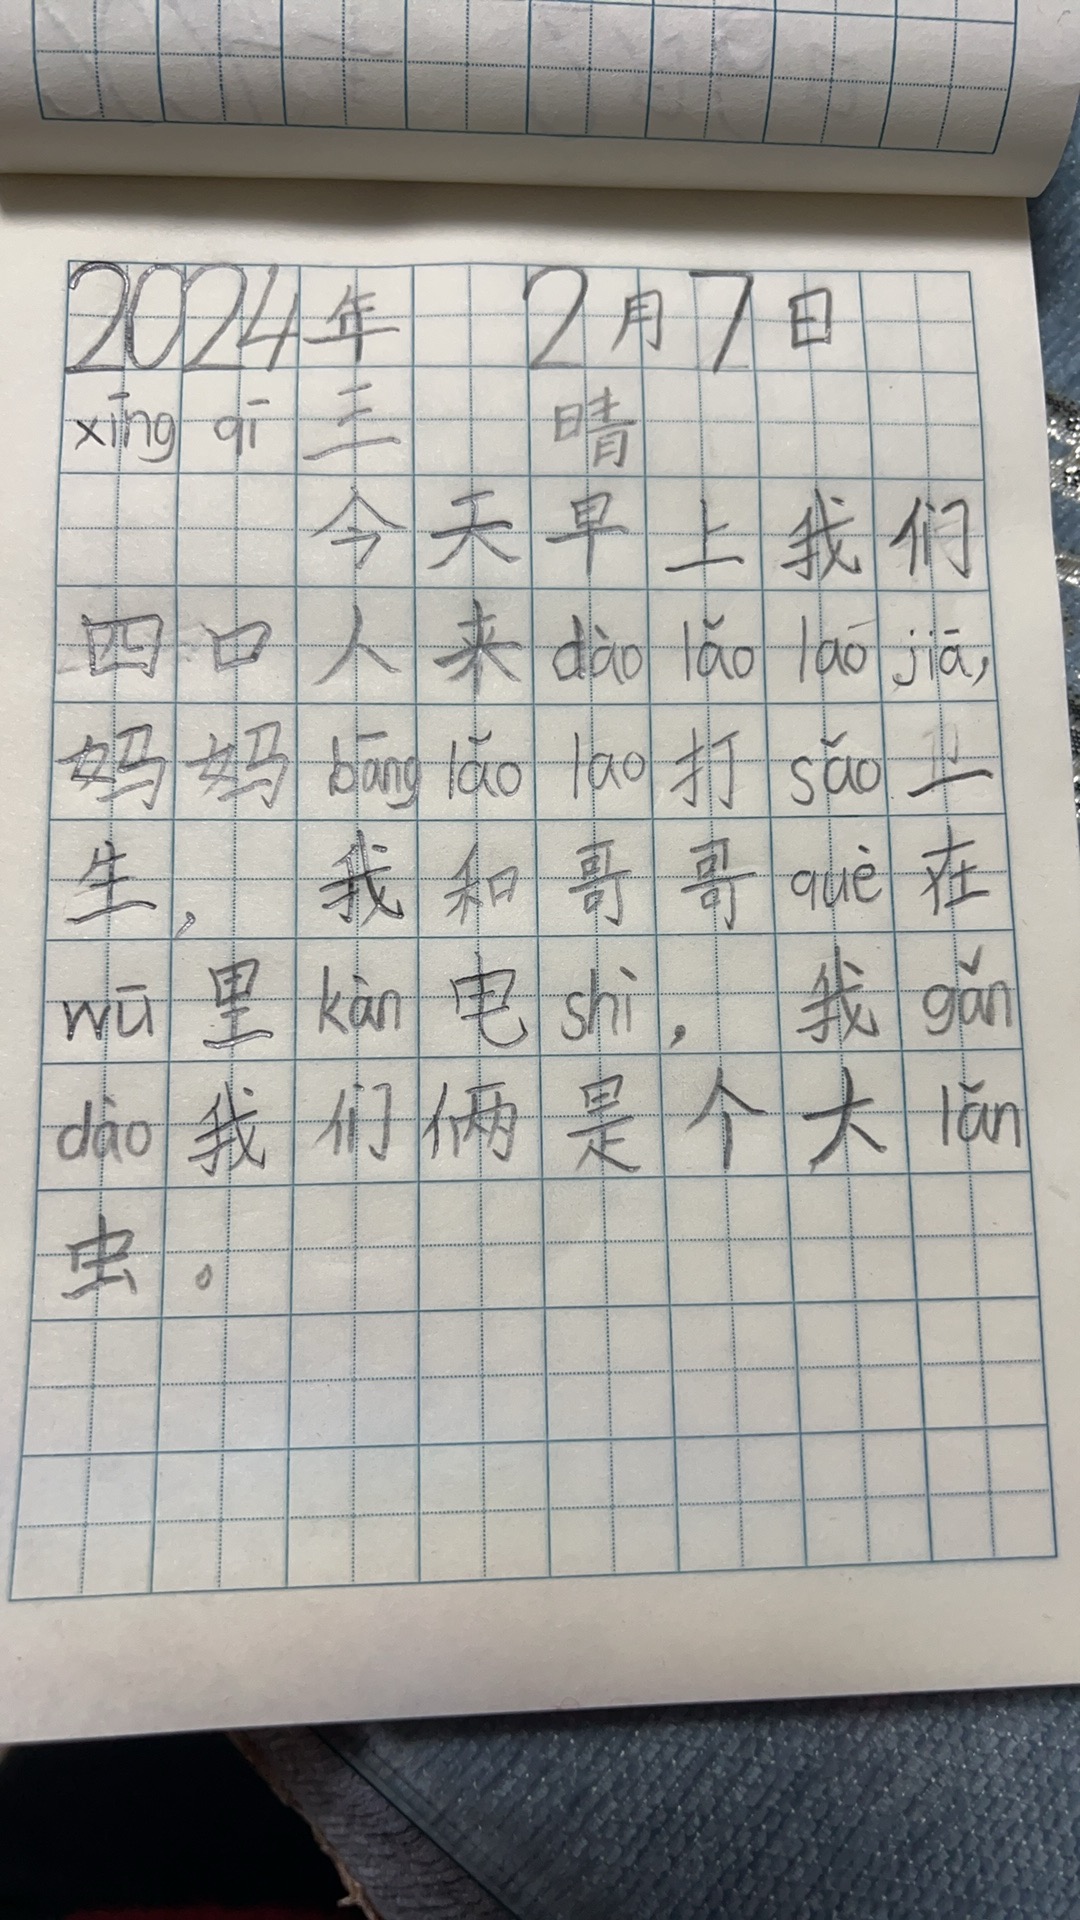 2024年 2月7日
xīng qī 三 晴
今天早上我们
四口人来 dào lǎo lao jiā，
妈妈 bāng lǎo lao 打 sǎo 卫
生， 我和哥哥 què 在
wū 里 kàn 电 shì， 我 gǎn
dào 我们俩是个大 lǎn
虫。